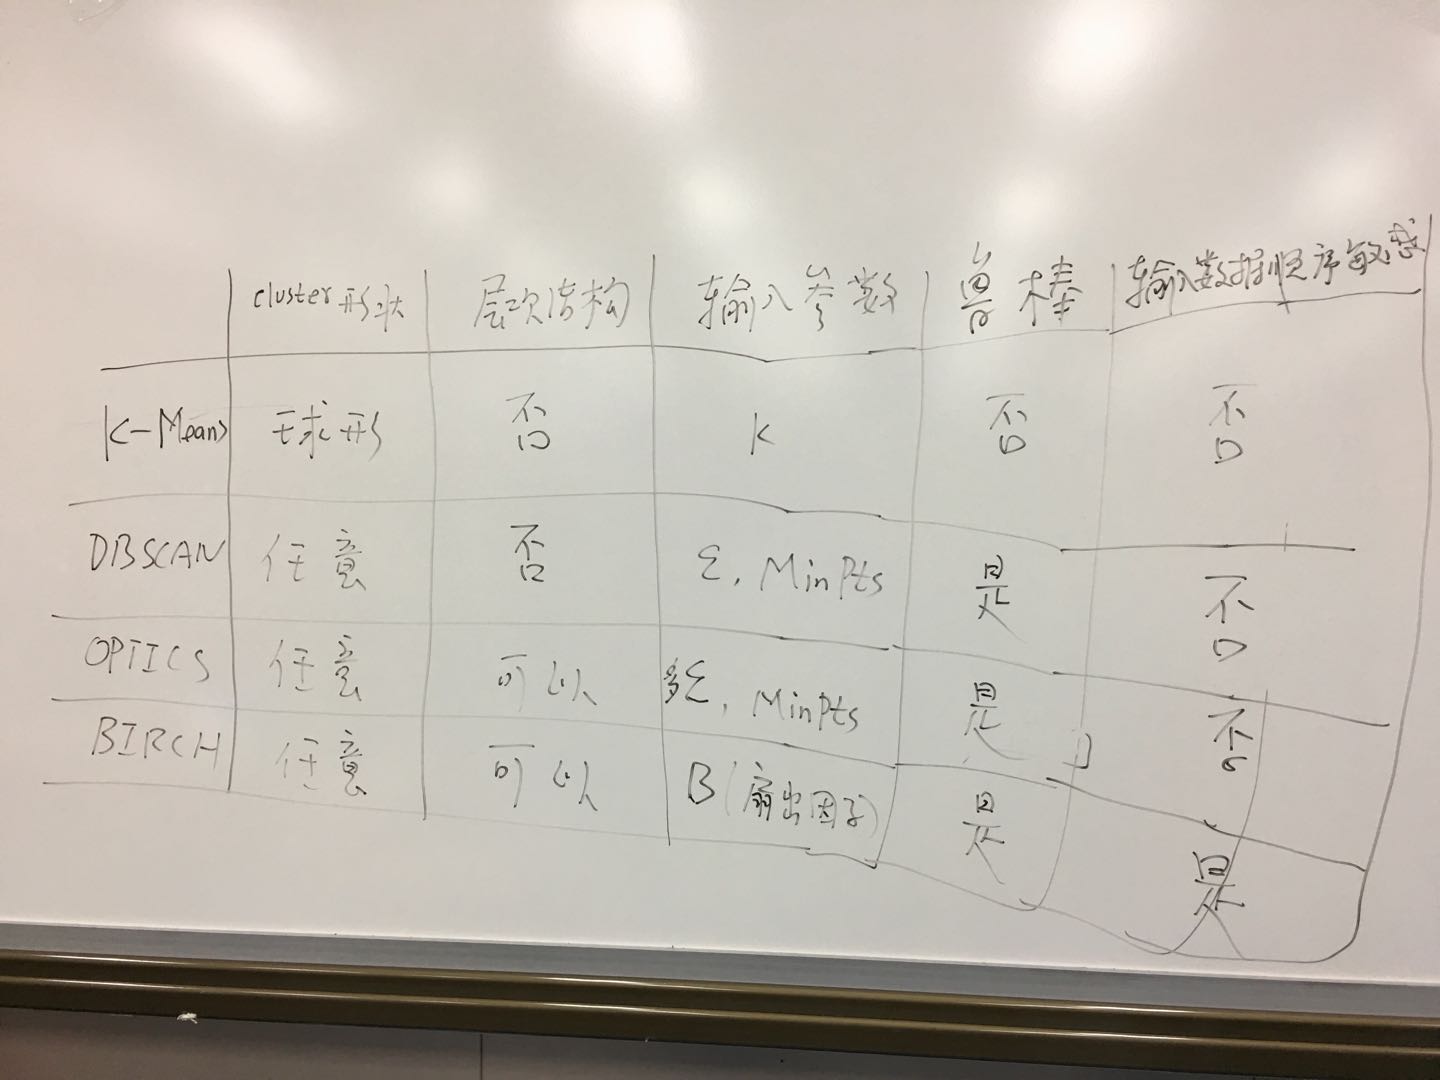 cluster形状 层次结构 输入参数 鲁棒 输入数据顺序敏感
K-Means 球形 否 K 否 否
DBSCAN 任意 否 ε, MinPts 是 否
OPTICS 任意 可以 多ε, MinPts 是 否
BIRCH 任意 可以 B(扇出因子) 是 是